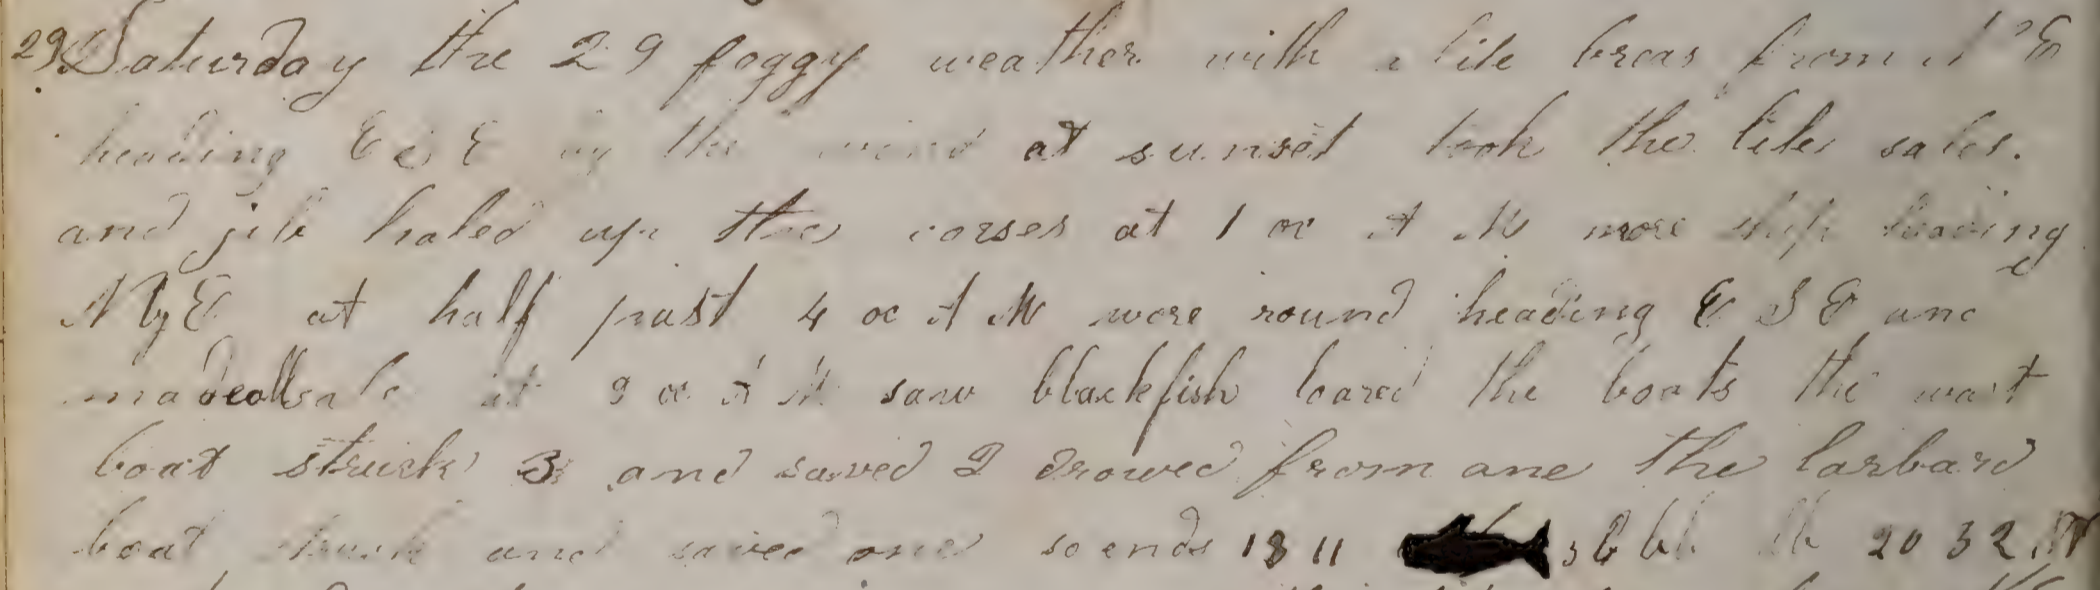 29 Saturday the 29 foggy weather with a lite breas from N E
heading E S E by the wind at sunset took the lite sales.
and jib haled up the corses at 1 oc A M wore ship heading
N by E at half past 4 oc A M wore round heading E S E and
made all sale at 9 oc A M saw blackfish loared the boats the wast
boat struck 3 and saved 2 drowed from ane the larbard
boat struck and saved one so ends 1811 3 bbl lt 20 32 N